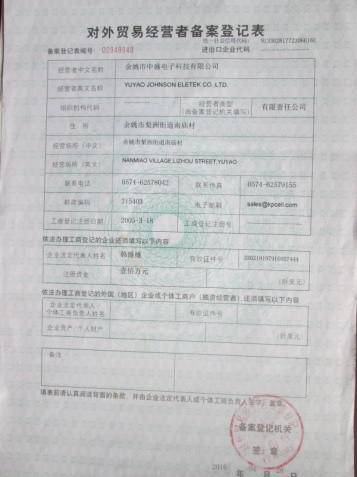 对外贸易经营者备案登记表
统一社会信用代码:
备案登记表编号 02348940 进出口企业代码
经营者中文名称 余姚市中盛电子科技有限公司
经营者英文名称 YUYAO JOHNSON ELETEK CO. LTD.
组织机构代码 经营者类型 (由备案登记机关填写) 有限责任公司
住 所 余姚市梨洲街道南庙村
经营场所(中文) 余姚市梨洲街道南庙村
经营场所(英文) NANMIAO VILLAGE,LIZHOU STREET,YUYAO
联系电话 0574-62578042 联系传真 0574-62579155
邮政编码 315403 电子邮箱 sales@kpcell.com
工商登记注册日期 2005-3-18 工商登记注册号
依法办理工商登记的企业还须填写以下内容
企业法定代表人姓名 有效证件号
注册资金 壹佰万元 (折美元)
依法办理工商登记的外国(地区)企业或个体工商户(独资经营者)还须填写以下内容
企业法定代表人/
个体工商负责人姓名 有效证件号
企业资产/个人财产 (折美元)
备注
填表前请认真阅读背面的条款,并由企业法定代表人或个体工商负责人签字、盖章。
备案登记机关
签 章
2016
年 月 日